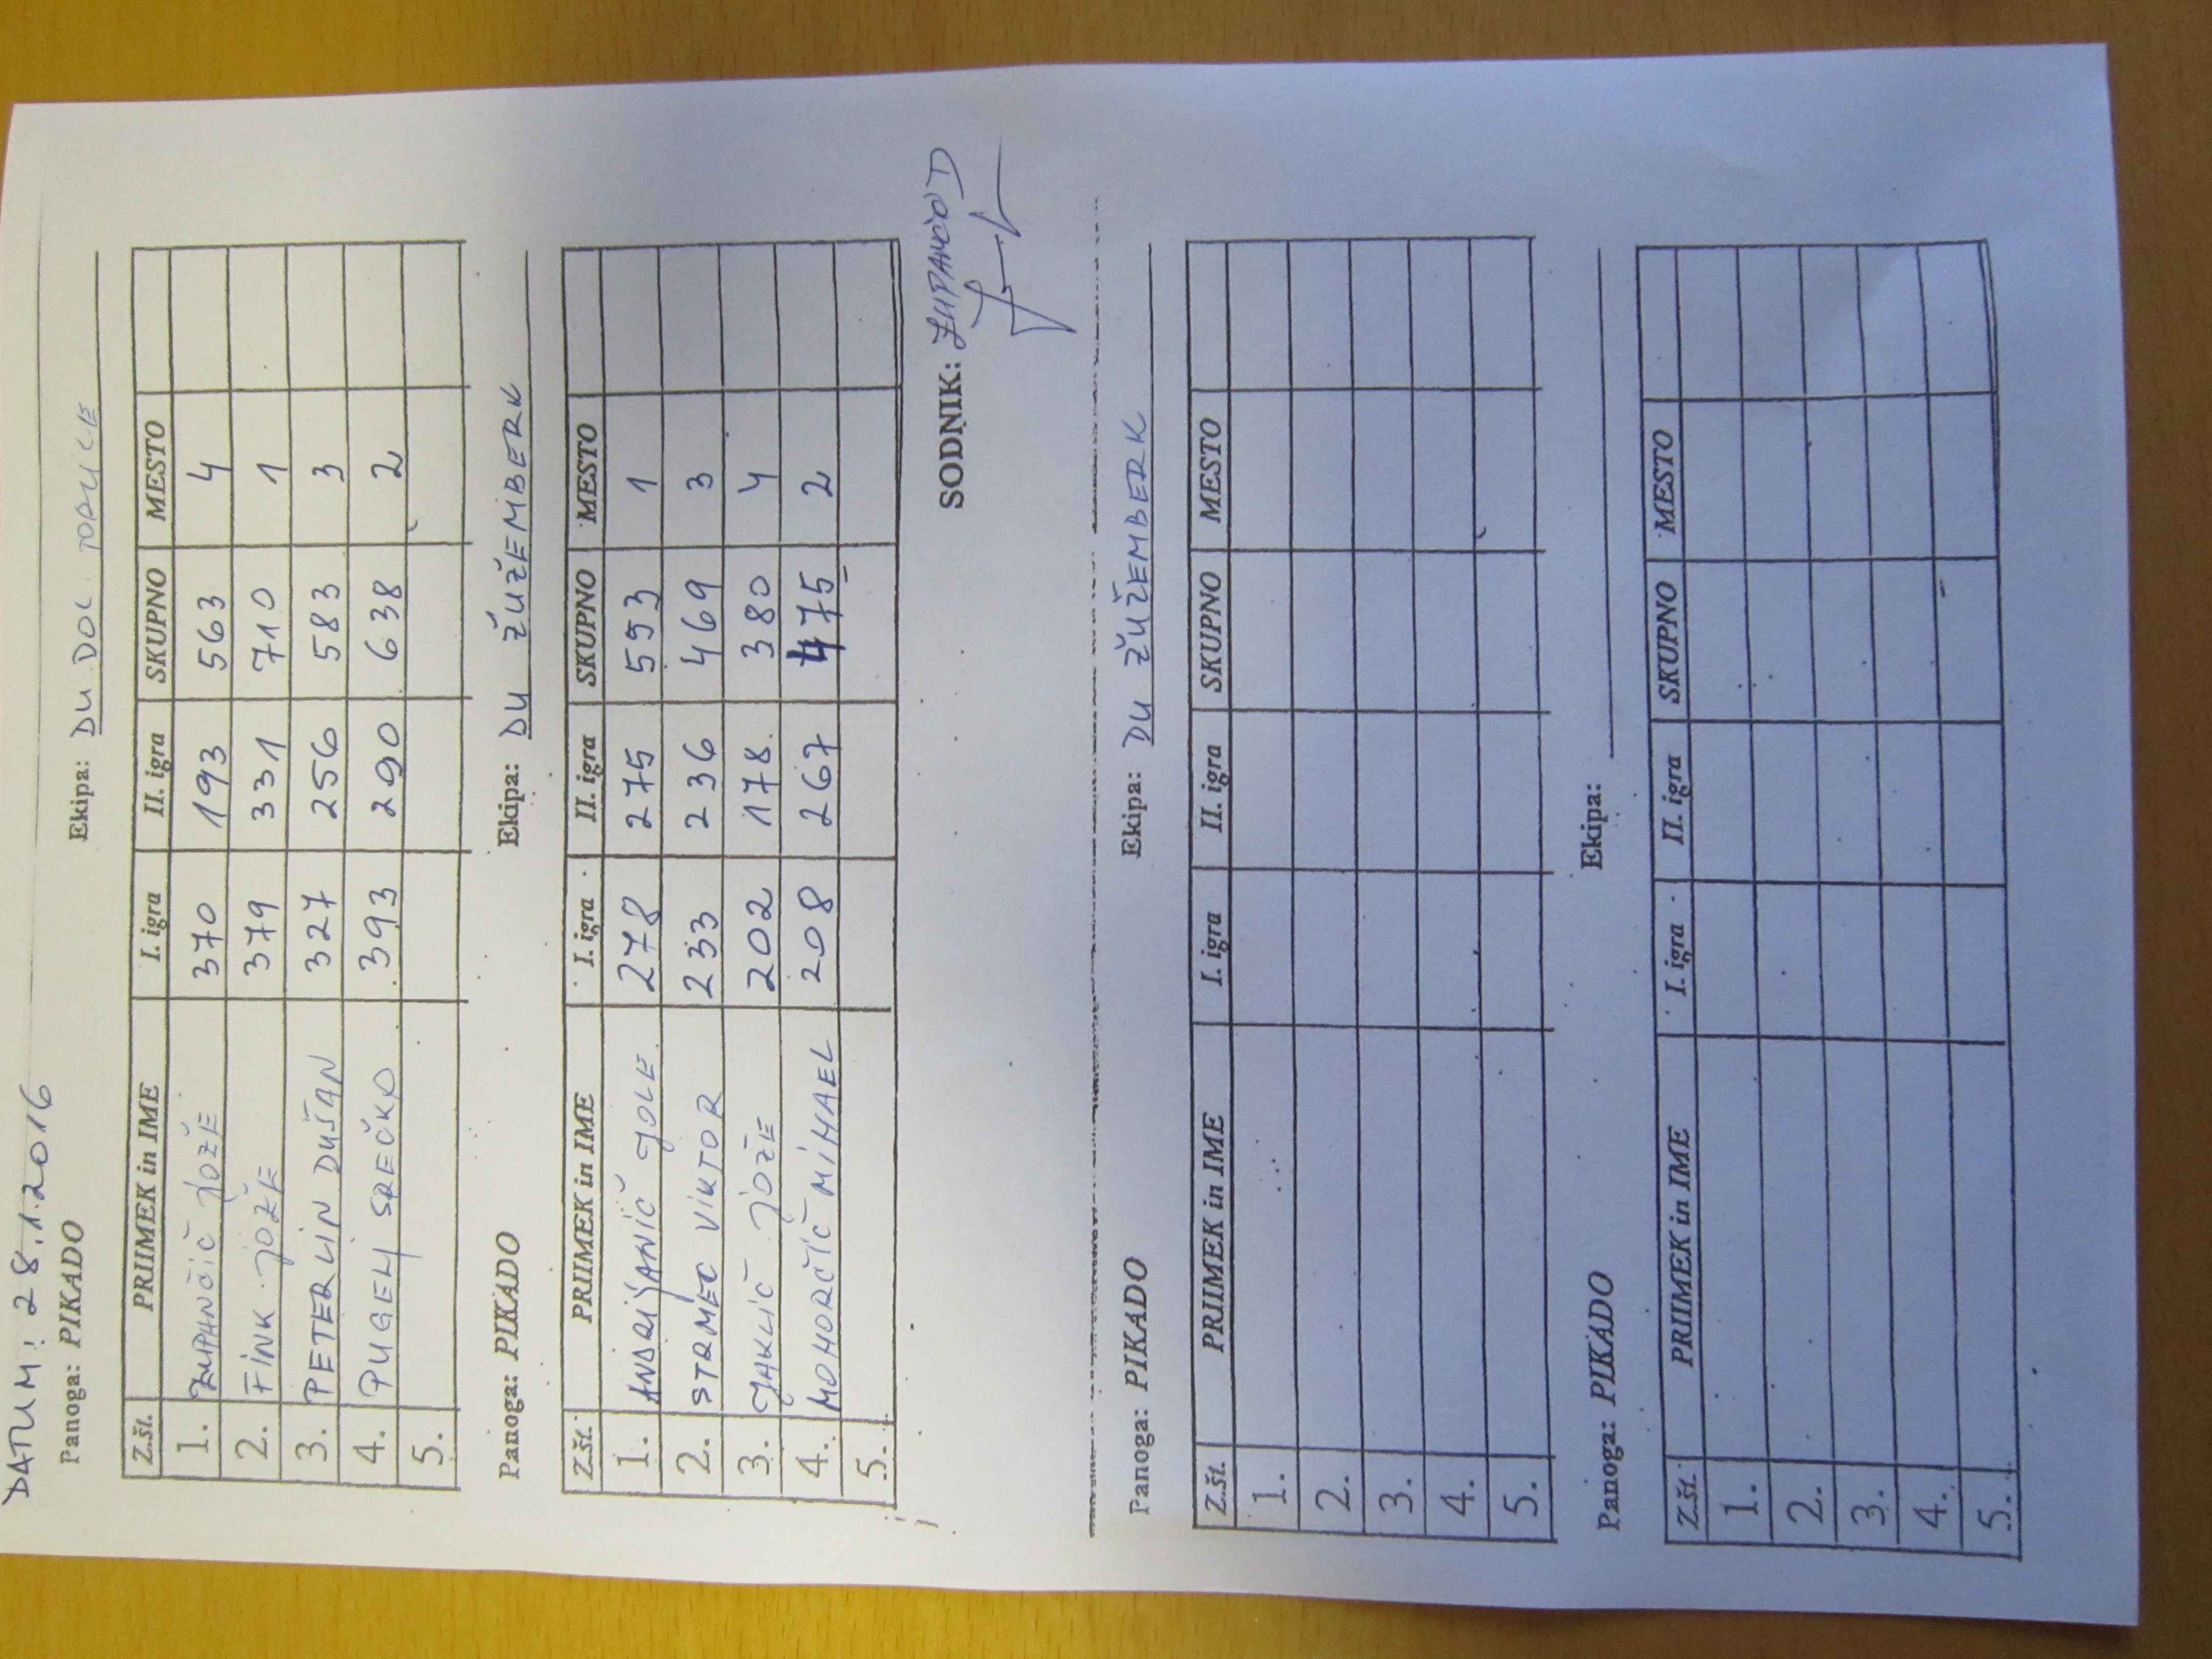 DATUM: 28.1.2016
Panoga: PIKADO Ekipa: DU DOL. TOPLICE
Z.št. PRIIMEK in IME I. igra II. igra SKUPNO MESTO
1. ZUPANČIČ JOŽE 370 193 563 4
2. FINK JOŽE 379 331 710 1
3. PETERLIN DUŠAN 327 256 583 3
4. PUGELJ SREČKO 393 290 638 2
5.
Panoga: PIKADO Ekipa: DU ŽUŽEMBERK
Z.št. PRIIMEK in IME I. igra II. igra SKUPNO MESTO
1. ANDRIJANIČ JOLE 278 275 553 1
2. STRMEC VIKTOR 233 236 469 3
3. JAKLIČ JOŽE 202 178 380 4
4. MOHORČIČ MIHAEL 208 267 475 2
5.
SODNIK:
Panoga: PIKADO Ekipa: DU ŽUŽEMBERK
Z.št. PRIIMEK in IME I. igra II. igra SKUPNO MESTO
1.
2.
3.
4.
5.
Panoga: PIKADO Ekipa:
Z.št. PRIIMEK in IME I. igra II. igra SKUPNO MESTO
1.
2.
3.
4.
5.